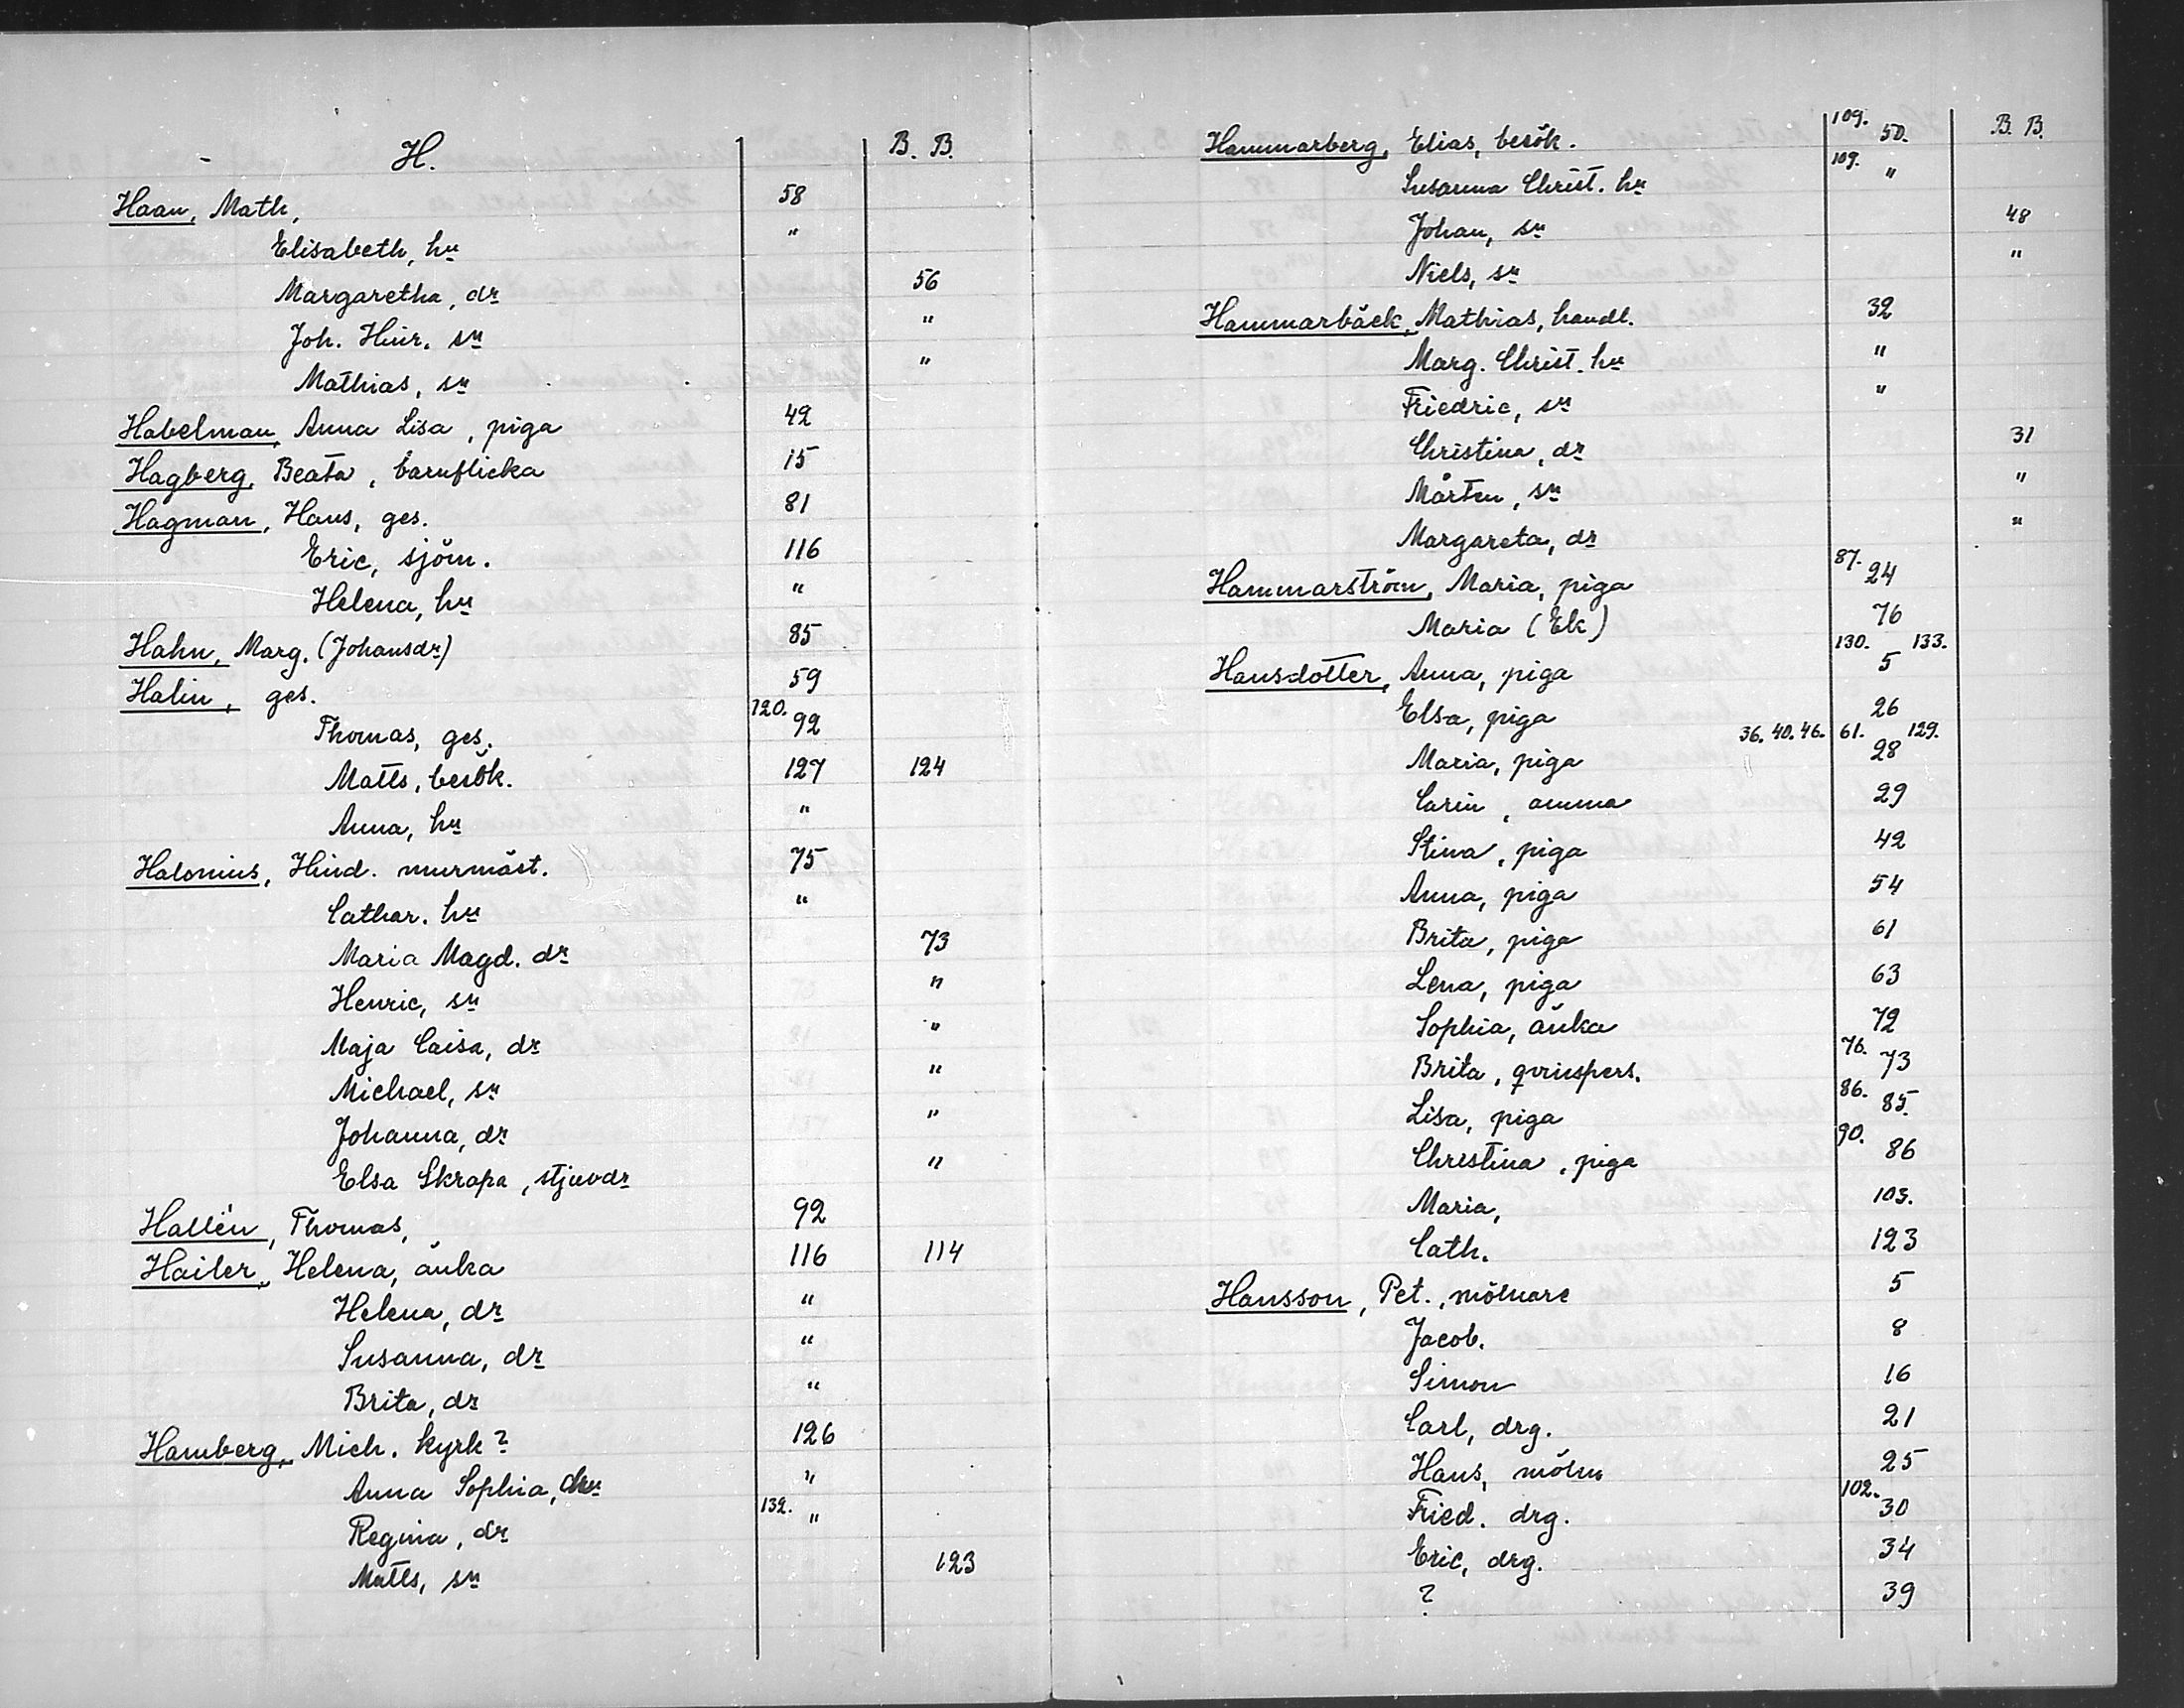 H. B. B.
Haan, Math, 58
Elisabeth, hu "
Margaretha, dr 56
Joh. Hinr. sn "
Mathias, sn "
Habelman, Anna Lisa, piga 42
Hagberg, Beata, barnflicka 15
Hagman, Hans, ges. 81
Eric, sjöm. 116
Helena, hu "
Hahn, Marg. (Johansdr) 85
Halin, ges. 59
Thomas, ges. 120. 92
Matts, besök. 127 124
Anna, hu "
Halonius, Hind. murmäst. 75
Cathar. hu "
Maria Magd. dr 73
Henric, sn "
Maja Caisa, dr "
Michael, sn "
Johanna, dr "
Elsa Skrapa, stjuvdr "
Hallén, Thomas, 92
Hailer, Helena, änka 116 114
Helena, dr "
Susanna, dr "
Brita, dr "
Hamberg, Mich. kyrk? 126
Anna Sophia, "
Regina, dr 132. "
Matts, sn 123
Hammarberg, Elias, besök. 109. 50. B. B.
Susanna Christ. hu 109. "
Johan, sn 48
Niels, sn "
Hammarbäck, Mathias, handl. 32
Marg. Christ. hu "
Friedric, sn "
Christina, dr 31
Mårten, sn "
Margareta, dr "
Hammarström, Maria, piga 87. 24
Maria (Ek) 76
Hansdotter, Anna, piga 130. 5 133.
Elsa, piga 26
Maria, piga 36. 40. 46. 61. 28 129.
Carin, amma 29
Stina, piga 42
Anna, piga 54
Brita, piga 61
Lena, piga 63
Sophia, änka 72
Brita, qvinspers. 76. 73
Lisa, piga 86. 85.
Christina, piga 90. 86
Maria, 103.
Cath. 123
Hansson, Pet., mölnare 5
Jacob. 8
Simon 16
Carl, drg. 21
Hans, möln 25
Fried. drg. 102. 30
Eric, drg. 34
? 39